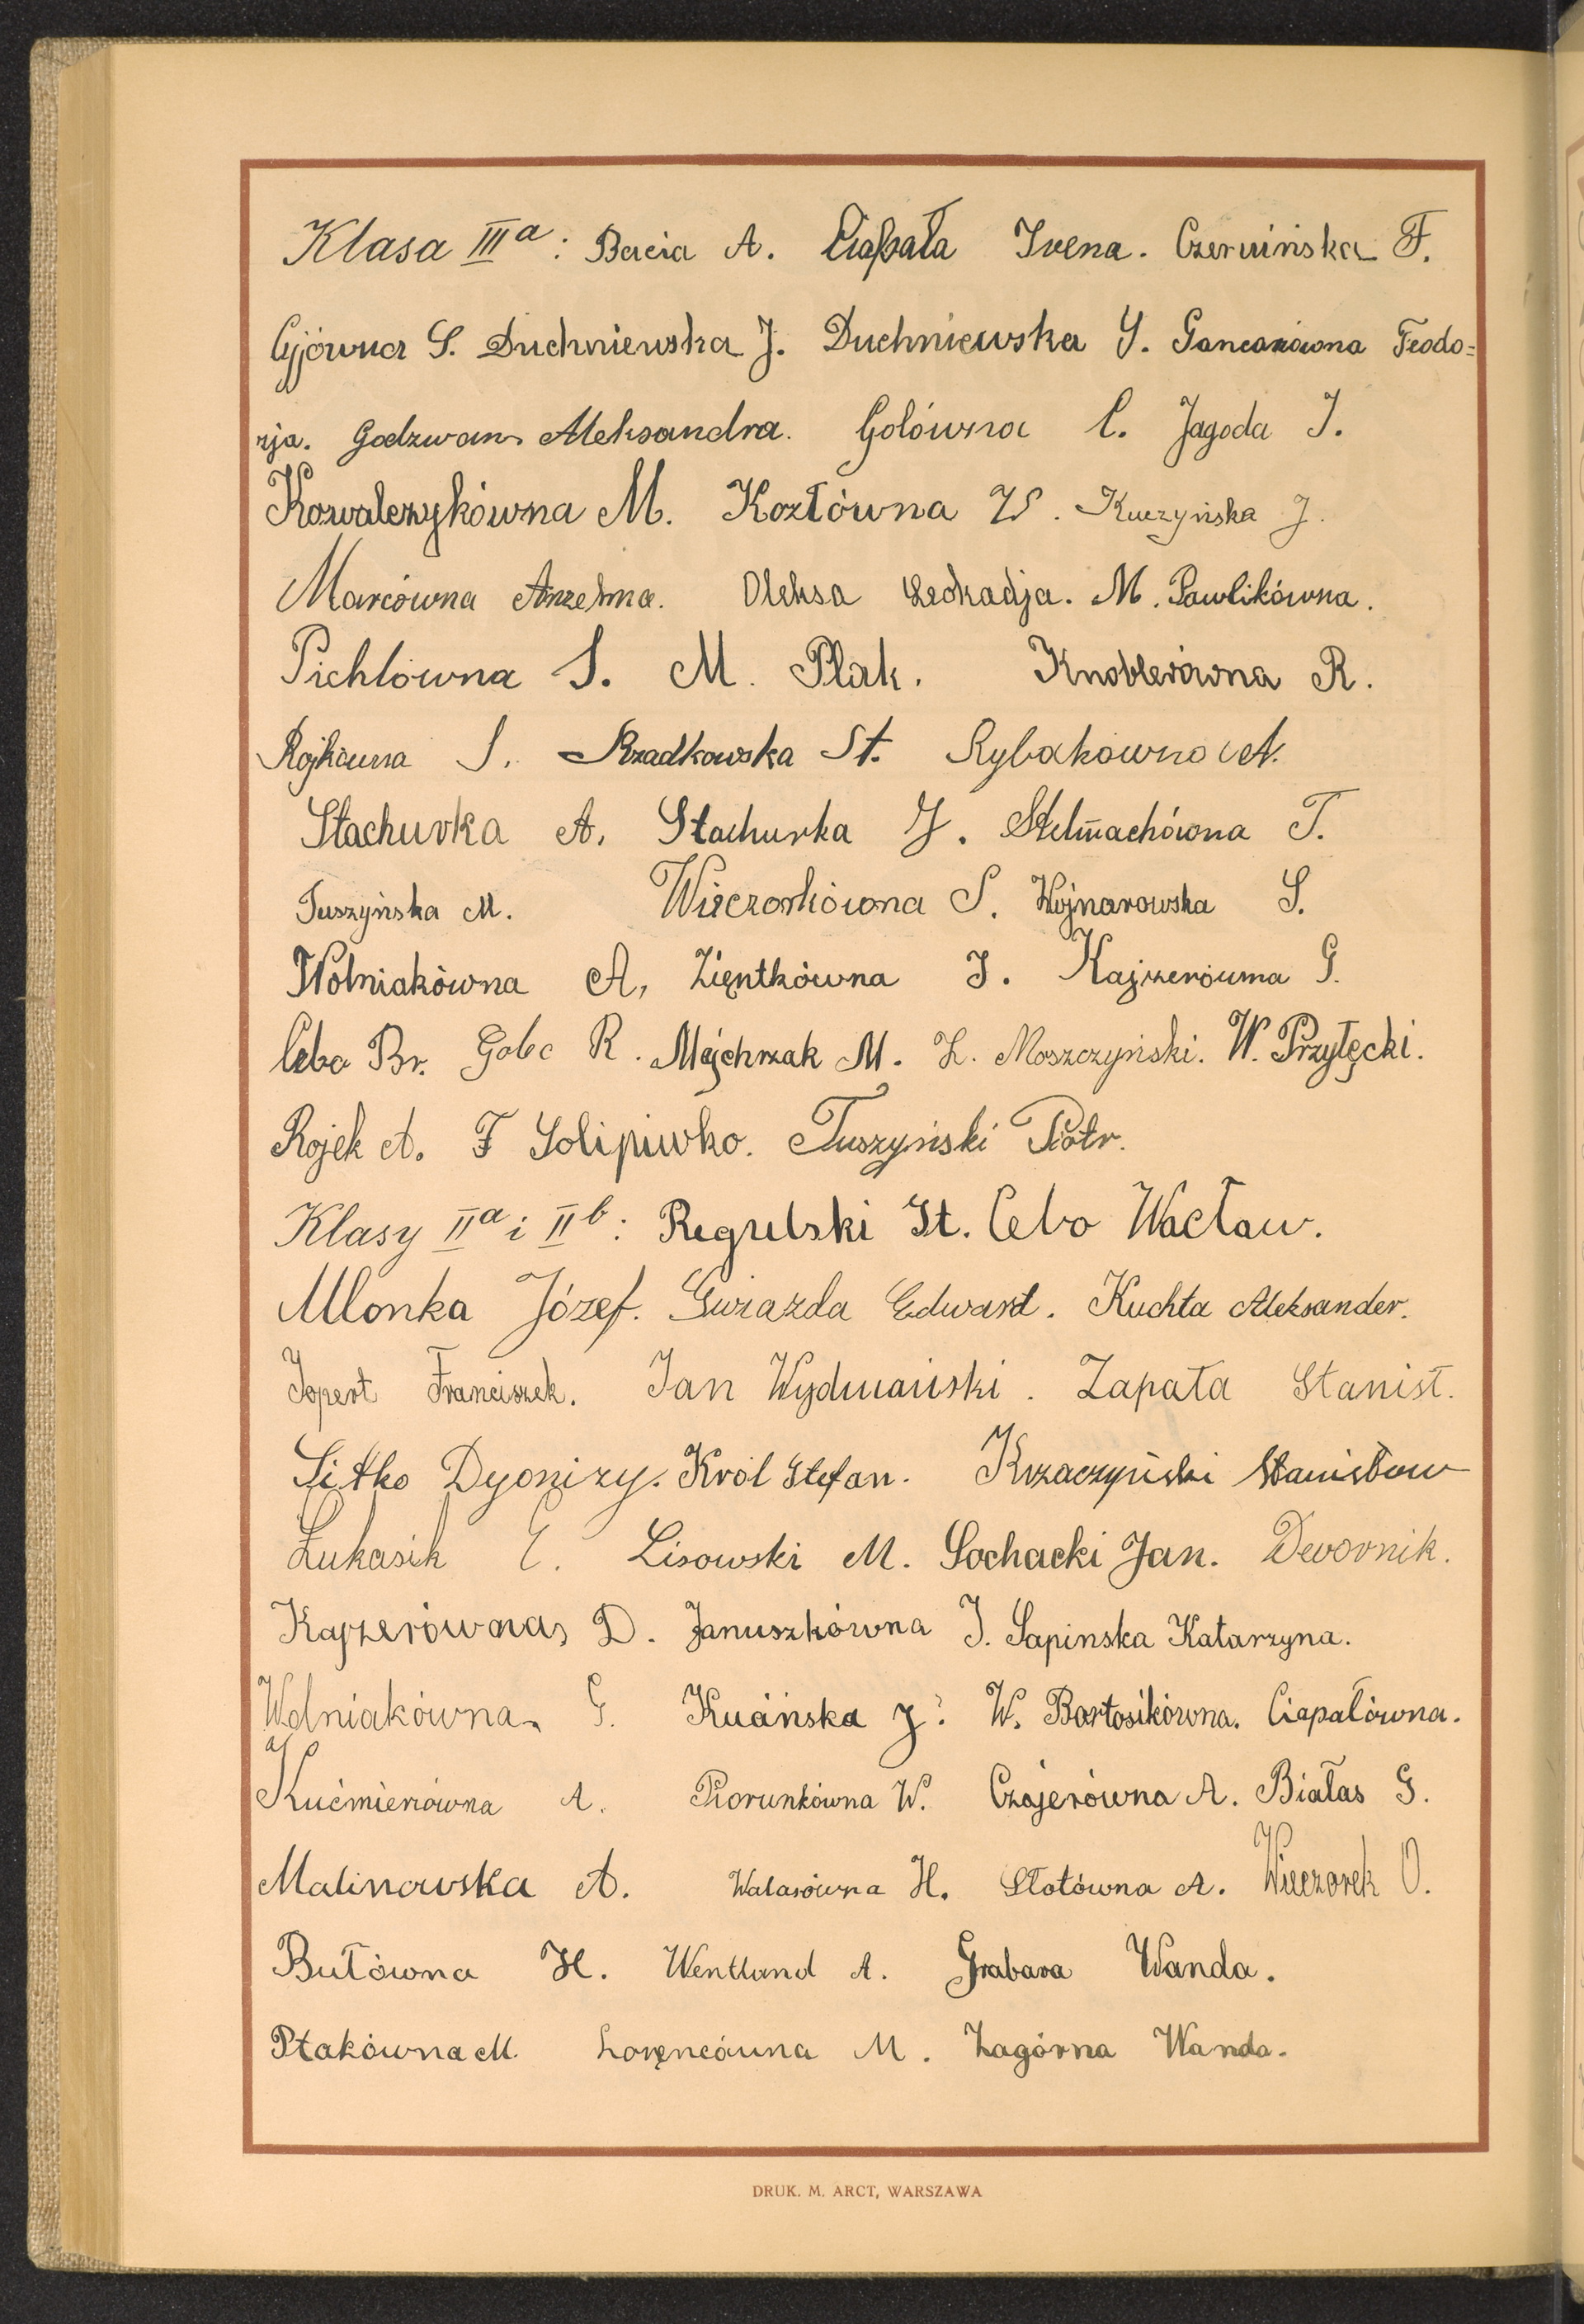 Klasa IIIa: Bacia A. Ciapała Irena. Czerwińska F.
Cyjówna S. Duchniewska J. Duchniewska Y. Gancarzówna Teodo=
rja. Godzwan Aleksandra. Golówna C. Jagoda J.
Kowalczykówna M. Kozłówna W. Kuczyńska J.
Marcówna Anzelma. Oleksa Leokadja. M. Pawlikówna.
Pichlówna S. M. Ptak. Knoblerówna R.
Rojkówna S. Rzadkowska St. Rybakówna A.
Stachurka A. Stachurka J. Stelmachówna T.
Tuszyńska M. Wieczorkówna S. Wojnarowska S.
Wolniakówna A, Zientkówna J. Kajzerówna G.
Cebo Br. Golec R. Majchrzak M. Z. Moszczyński. W. Przyłęcki.
Rojek A. F Solipiwko. Tuszyński Piotr.
Klasy IIa i IIb: Regulski St. Cebo Wacław.
Mlonka Józef. Gwiazda Edward. Kuchta Aleksander.
Jopert Franciszek. Jan Wydmański. Zapała Stanisł.
Sitko Dyonizy. Król Stefan. Krzaczyński Stanisław
Łukasik E. Lisowski M. Sochacki Jan. Dwornik.
Kajzerówna D. Januszkówna J. Sapinska Katarzyna.
Wolniakówna G. Kucińska J. W. Bartosikówna. Ciapałówna.
Kućmierówna A. Piorunkówna W. Czajerówna A. Białas G.
Malinowska A. Walasówna H. Słotówna A. Wieczorek O.
Butówna H. Wentland A. Grabara Wanda.
Ptakówna M. Lorencówna M. Zagórna Wanda.
DRUK. M. ARCT, WARSZAWA